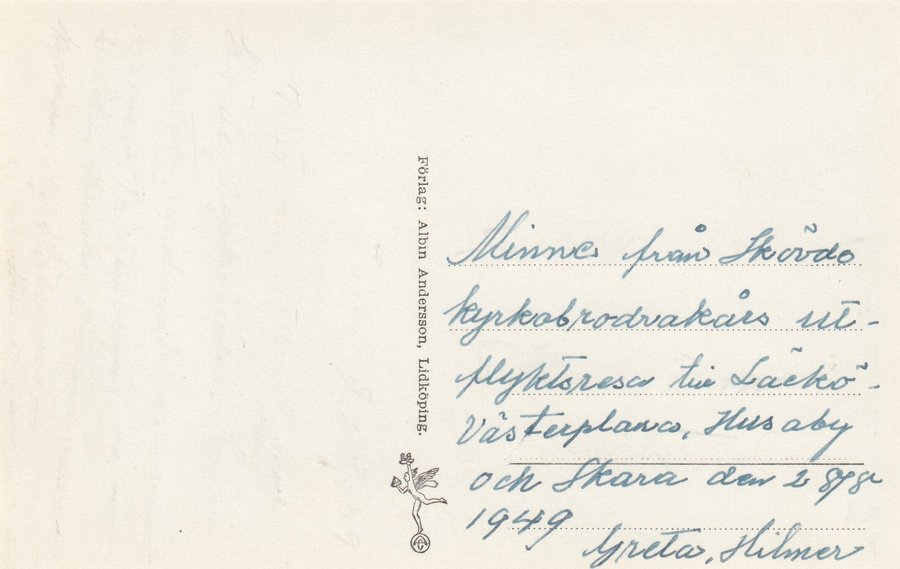 Förlag: Albin Andersson, Lidköping.
Minne från Skövde
kyrkobrodrakårs ut-
flyktsresa till Läckö-
Västerplana, Husaby
och Skara den
1949
Greta, Hilmer